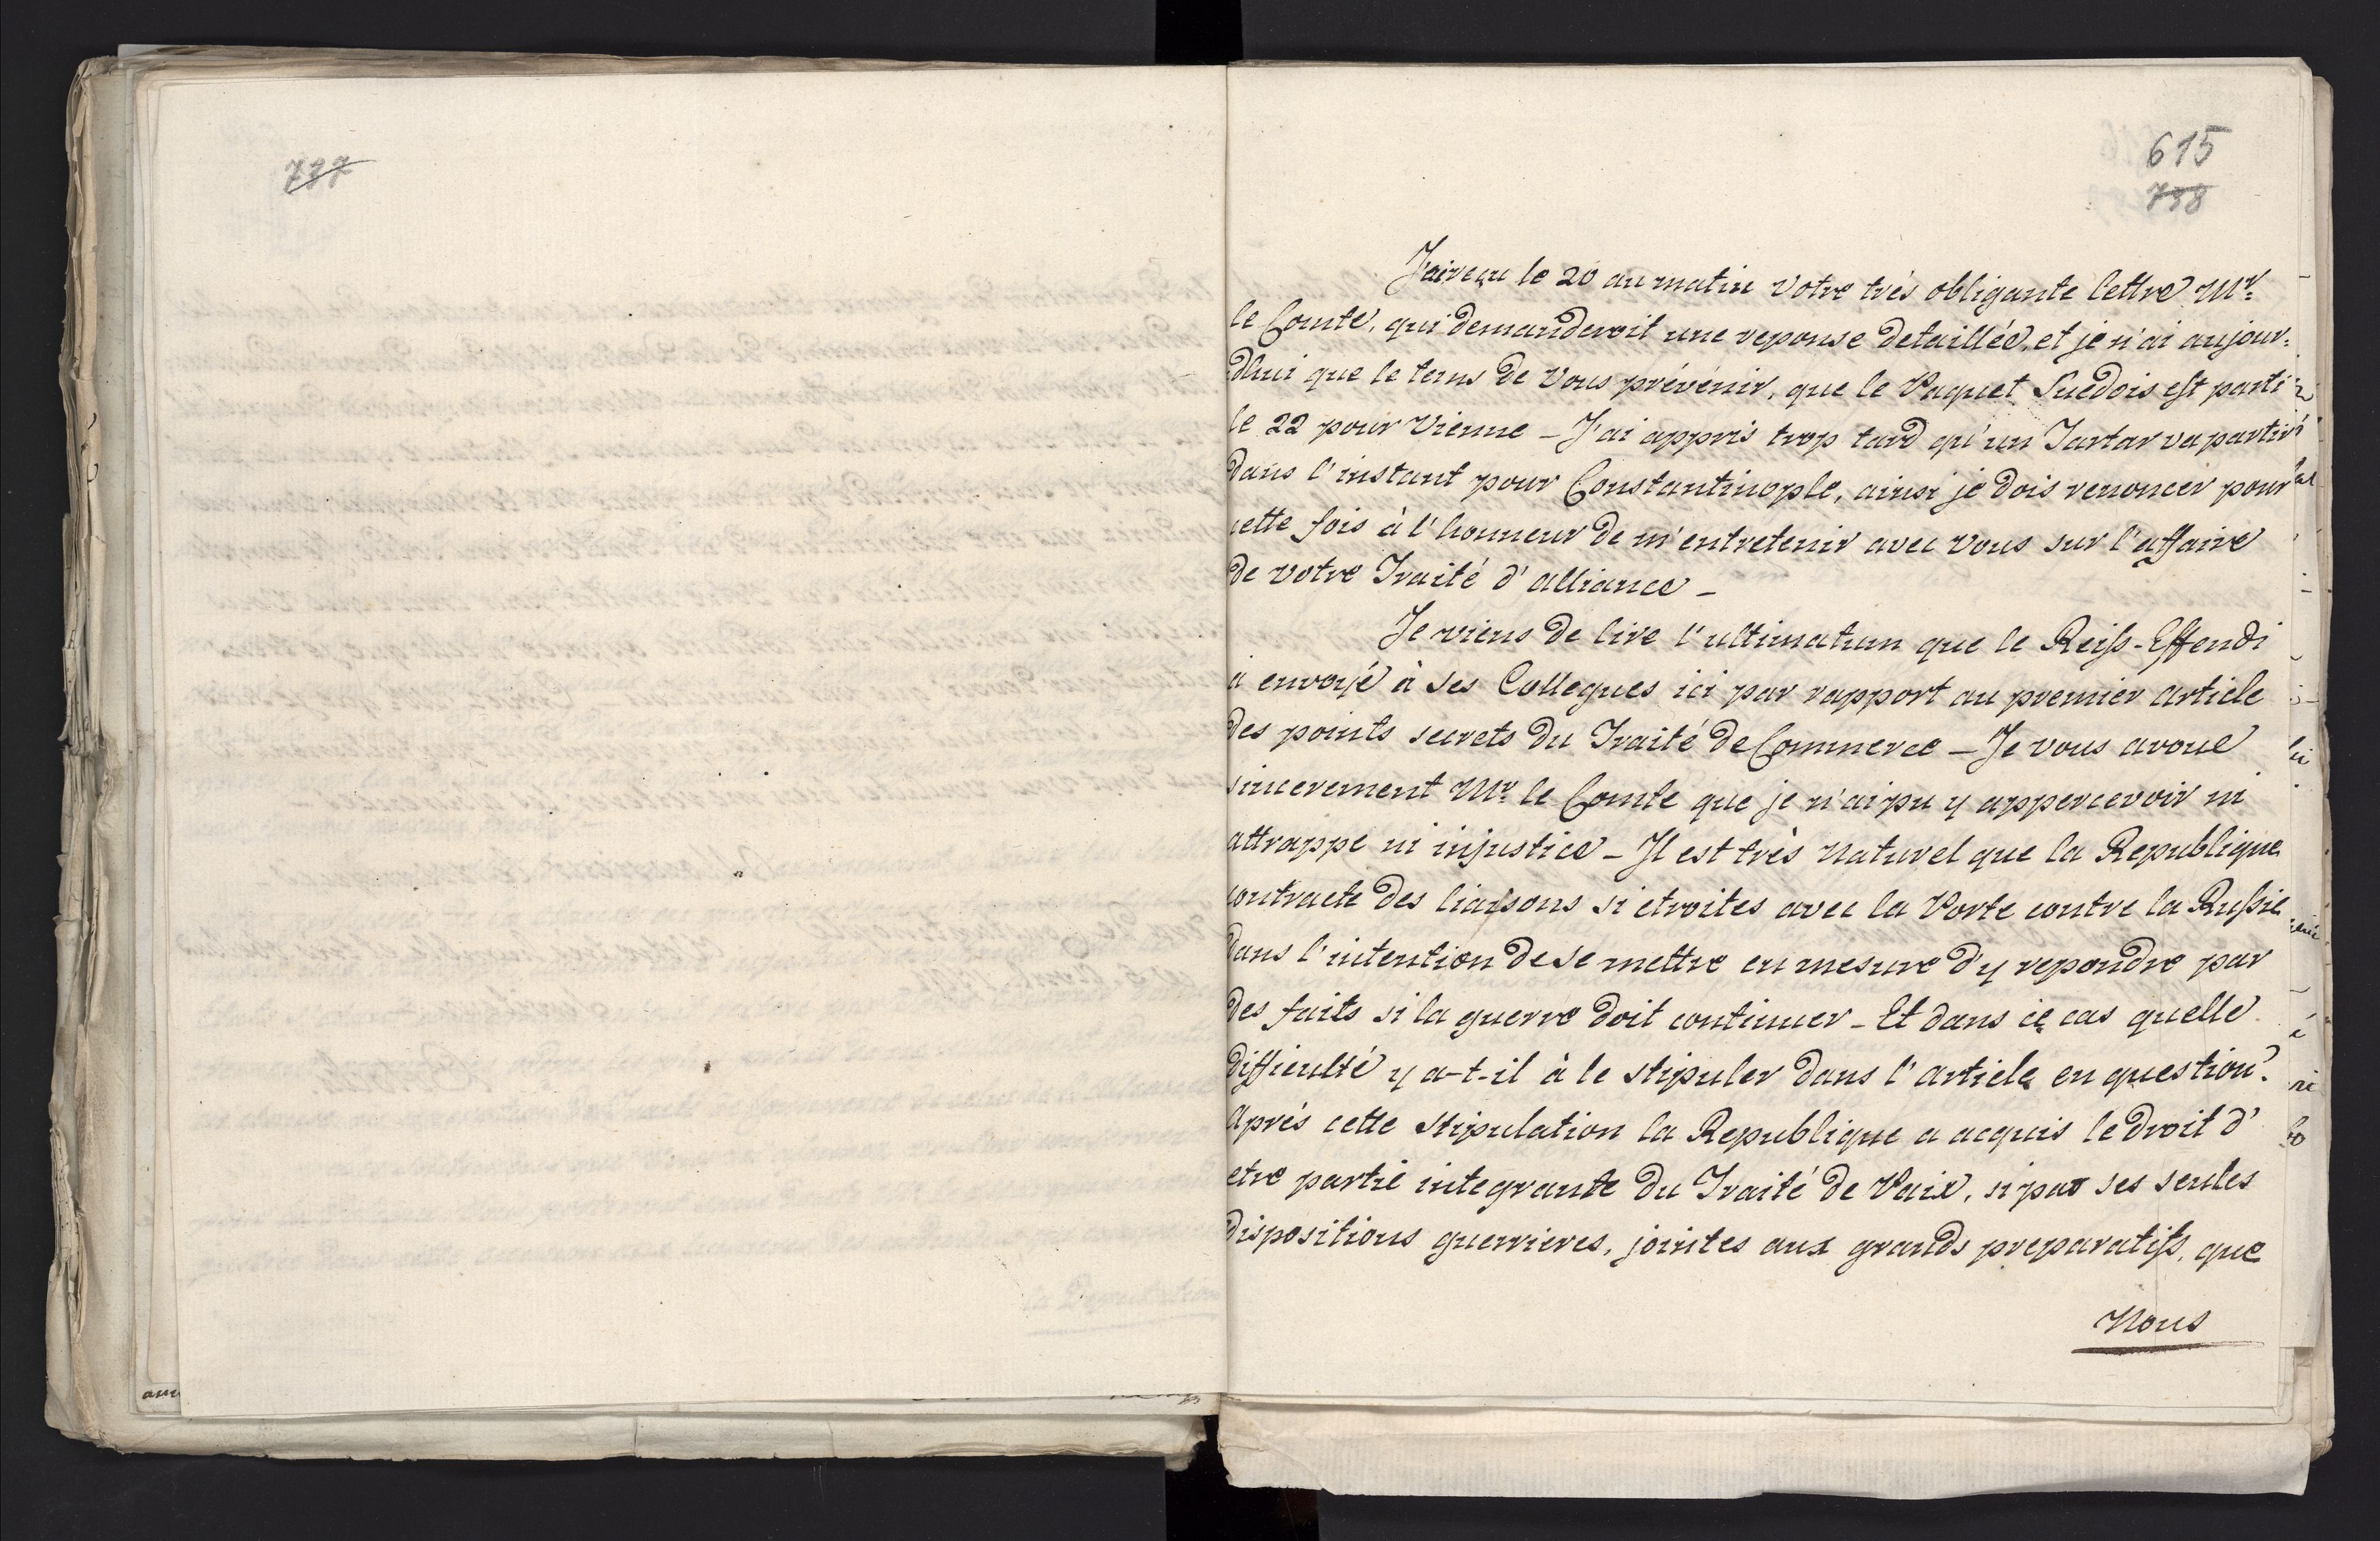 777
615
788
J'ai reçu le 20 au matin Votre très obligante lettre Mr
le Comte, qui demanderoit une reponse detaillée, et je n'ai aujour=
dhui que le tems de Vous prévénir, que le Paquet Suédois est parti
le 22 pour Vienne – J'ai appris trop tard qu'un Tartar va partir
dans l'instant pour Constantinople, ainsi je dois renoncer pour
cette fois à l'honneur de m'entretenir avec Vous sur l'affaire
de votre Traité d'alliance –
Je viens de lire l'ultimatum que le Reiss-Effendi
a envoyé à ses Collegues ici par rapport au premier article
des points secrets du Traité de Commerce – Je vous avoue
sincerement Mr le Comte que je n'ai pu y appercevoir ni
attrappe ni injustice – Il est très naturel que la Republique
contracte des liaisons si etroites avec la Porte contre la Russie
dans l'intention de se mettre en mesure d'y repondre par
des faits si la guerre doit continuer – Et dans ce cas quelle
difficulté y a-t-il à le stipuler dans l'article en question?
Après cette stipulation la Republique a acquis le droit d'
etre partie integrante du Traité de Paix, si par ses seules
dispositions guerrieres, jointes aux grands preparatifs, que
Nous